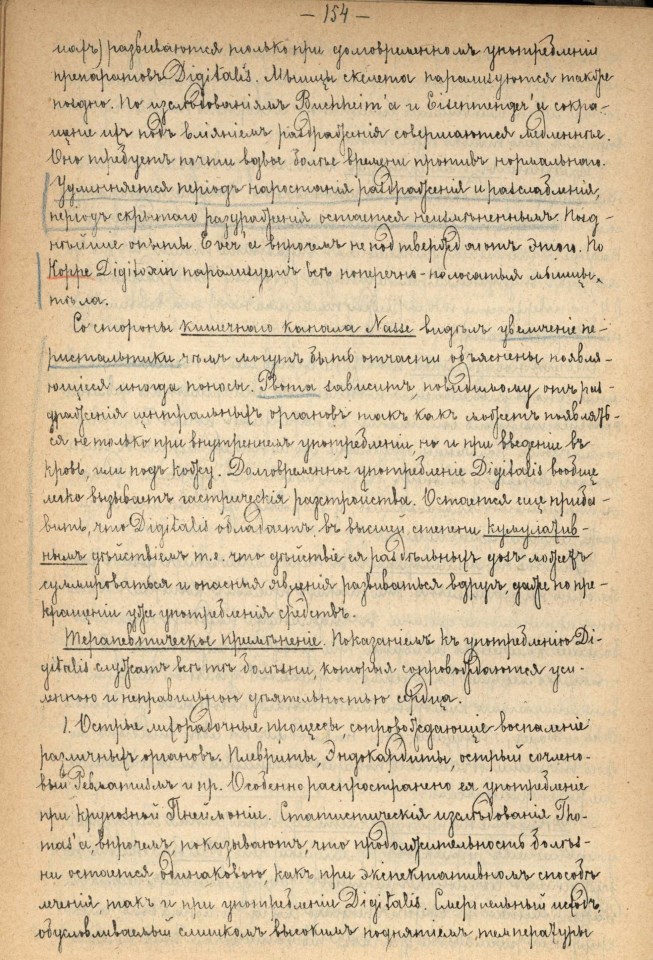 — 154 —
цахъ) развиваются только при долговременномъ употребленіи
препаратовъ Digitalis. Мышцы скелета парализуются также
поздно. По изслѣдованіямъ Buchheim'a и Eisenmenger'a сокра-
щеніе ихъ подъ вліяніемъ раздраженія совершаются медленнѣе.
Оно требуетъ почти вдвое болѣе времени противъ нормальнаго.
Удлинняется періодъ наростанія раздраженія и разслабленія,
періодъ скрытаго раздраженія остается неизмѣненнымъ. Позд-
нѣйшіе опыты Ever'a впрочемъ не подтверждаютъ этого. По
Koppe Digitoxin парализуетъ всѣ поперечно-полосатыя мышцы
тѣла.
Со стороны кишечнаго канала Nasse видѣлъ увеличеніе пе-
ристальтики чѣмъ могутъ быть отчасти объяснены появля-
ющіеся иногда поносы. Рвота зависитъ, повидимому отъ раз-
драженія центральныхъ органовъ такъ какъ можетъ появлять-
ся не только при внутреннемъ употребленіи, но и при введеніе въ
кровь, или подъ кожу. Долговременное употребленіе Digitalis вообще
легко вызываетъ гастрическія разстройства. Остается еще приба-
вить, что Digitalis обладаетъ въ высшей степени кумулатив-
нымъ дѣйствіемъ т.е. что дѣйствіе ея раздѣльныхъ дозъ можетъ
суммироваться и опасныя явленія развиваться вдругъ, даже по пре-
кращеніи уже употребленія средствъ.
Терапевтическое примѣненіе. Показаніемъ къ употребленію Di-
gitalis служатъ всѣ тѣ болѣзни, которыя сопровождаются уси-
ленною и неправильною дѣятельностью сердца.
1. Острые лихорадочные процессы, сопровождающіе воспаленіе
различныхъ органовъ. Плевриты, Эндокардиты, острый сочлено-
вый Ревматизмъ и пр. Особенно распространено ея употребленіе
при крупозной Пнеймоніи. Статистическія изслѣдованія Tho-
mas'a, впрочемъ, показываютъ, что продолжительность болѣз-
ни остается одинаковою, какъ при экспектативномъ способѣ
леченія, такъ и при употребленіе Digitalis. Смертельный исходъ,
обусловливаемый слишкомъ высокимъ поднятіемъ температуры